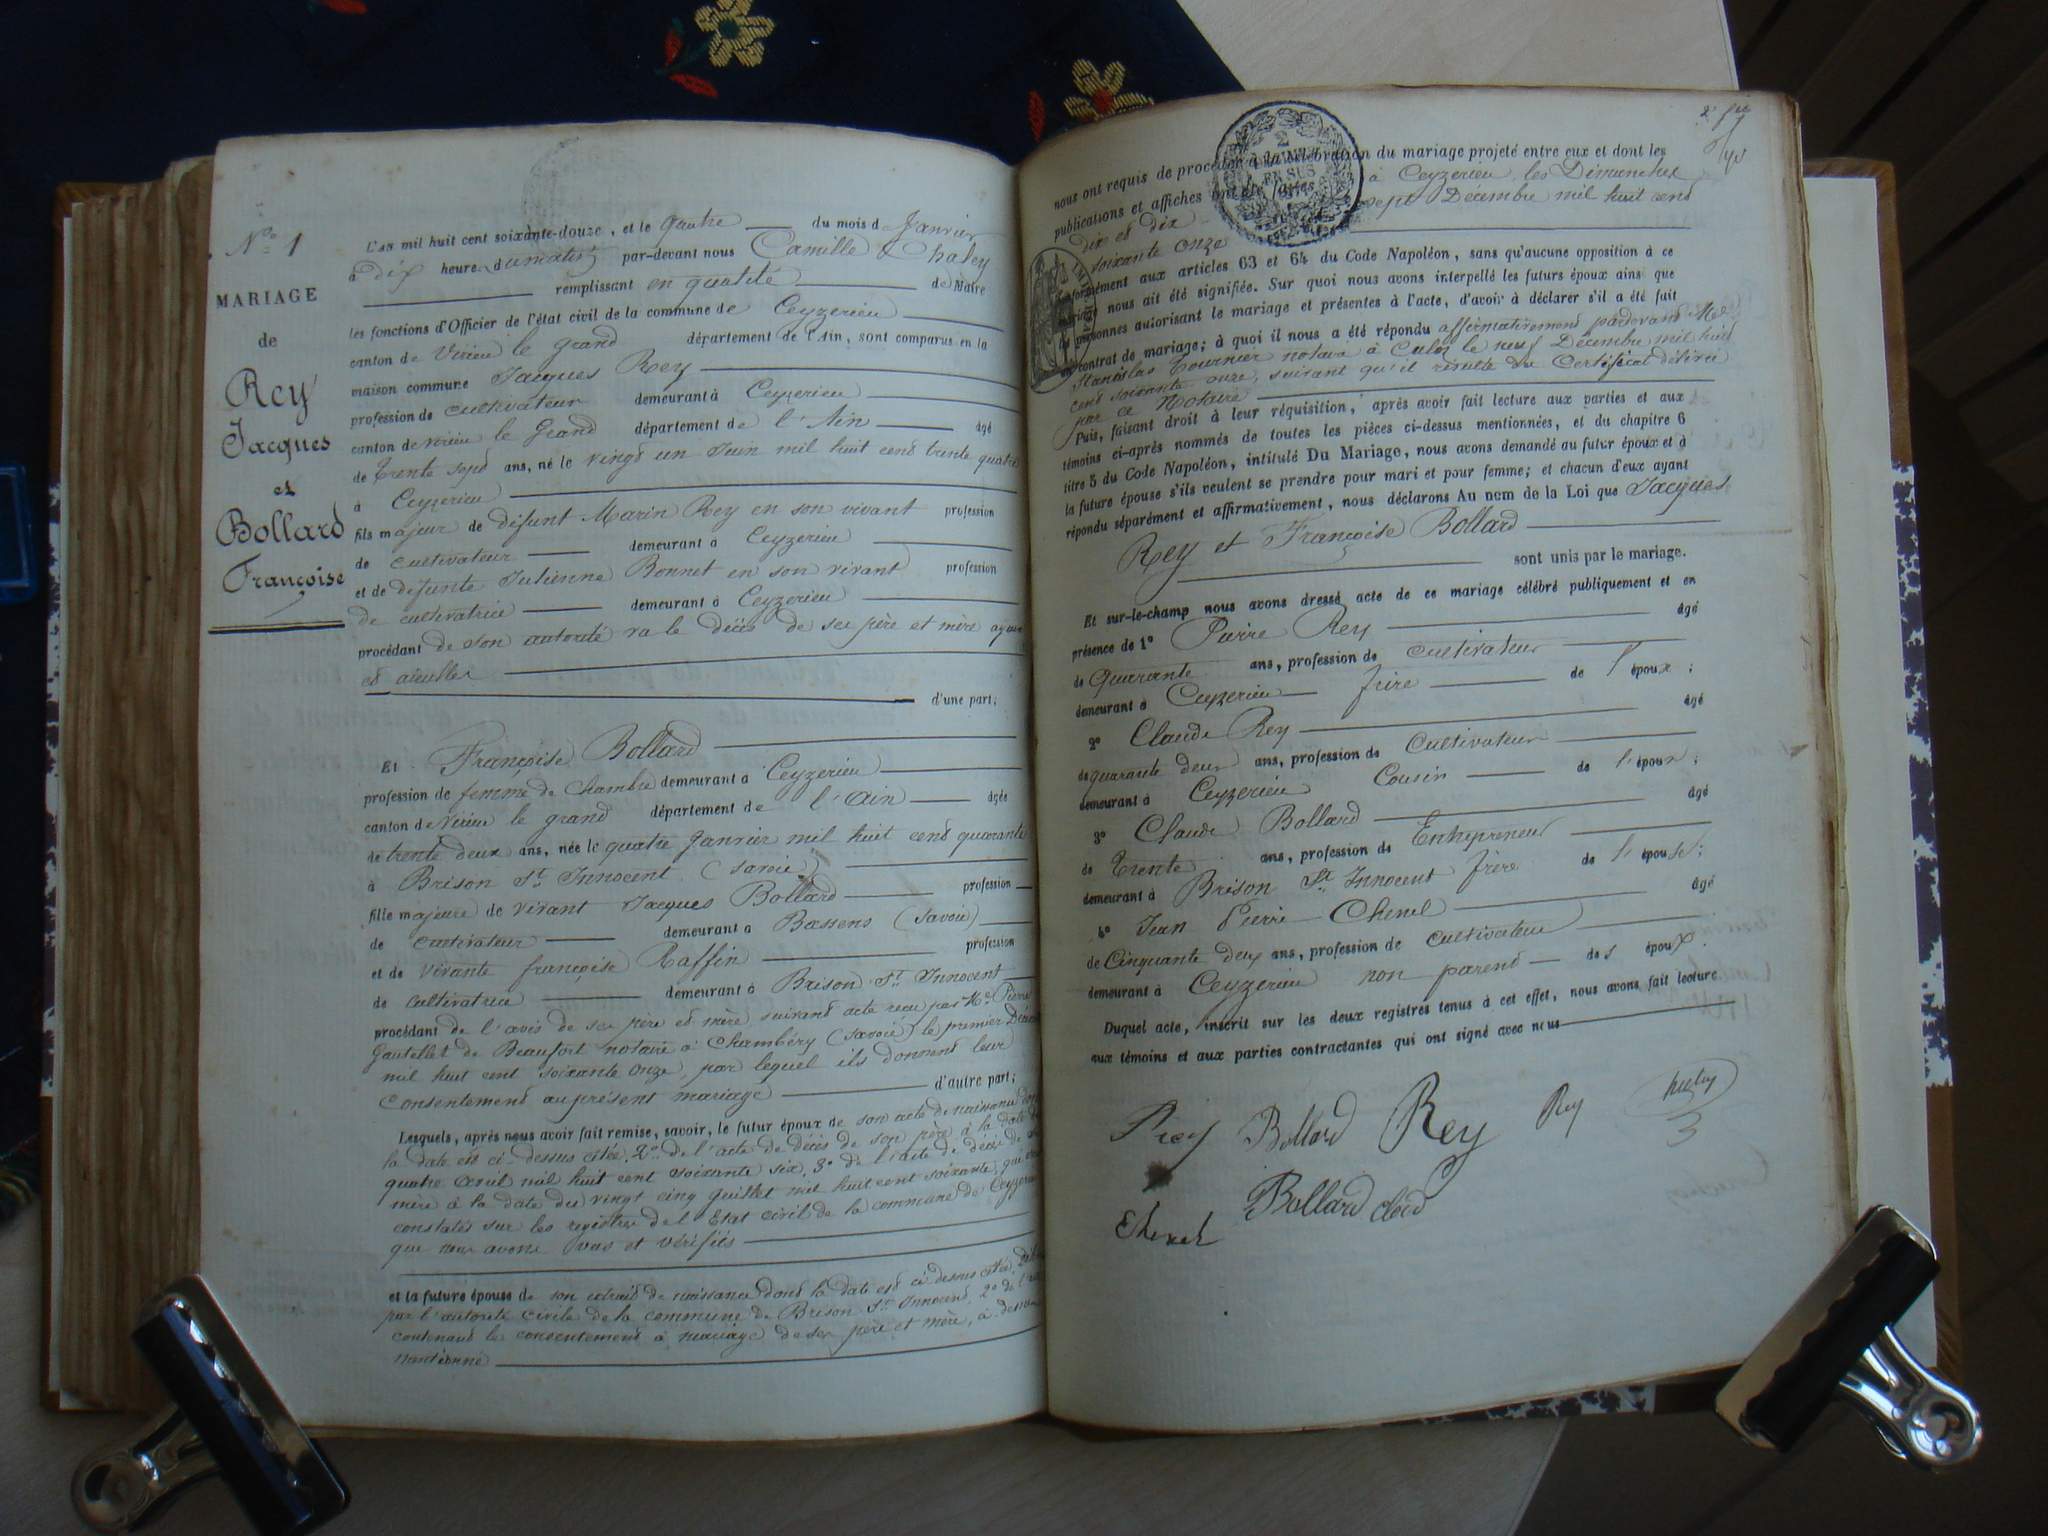 N° 1
MARIAGE
de
Rey
Jacques
et
Bollard
Françoise
L'an mil huit cent soixante-douze, et le quatre du mois d Janvier
à dix heures du matin par-devant nous Camille Chaley
remplissant en qualité de Maire
les fonctions d'Officier de l'état civil de la commune de Ceyzerieu
canton de Virieu le grand département de l'Ain, sont comparus en la
maison commune Jacques Rey
profession de cultivateur demeurant à Ceyzerieu
canton de Virieu le Grand département de l'Ain âgé
de Trente sept ans, né le vingt un Juin mil huit cent trente quatre
à Ceyzerieu
fils majeur de défunt Marin Rey en son vivant profession
de cultivateur demeurant à Ceyzerieu
et de défunte Julienne Bonnet en son vivant profession
de cultivatrice demeurant à Ceyzerieu
procédant de son autorité vu le décès de ses père et mère ayeux
et aïeules
d'une part;
Et Françoise Bollard
profession de femme de Chambre demeurant à Ceyzerieu
canton de Virieu le grand département de l'Ain âgée
de trente deux ans, née le quatre Janvier mil huit cent quarante
à Brison St Innocent (Savoie)
fille majeure de vivant Jacques Bollard profession
de cultivateur demeurant à Bassens (Savoie)
et de vivante françoise Raffin profession
de cultivatrice demeurant à Brison St Innocent
procédant de l'avis de ses père et mère suivant acte reçu par Me Pierre
Gautellet de Beaufort notaire à Chambéry (Savoie) le premier Décem
mil huit cent soixante onze, par lequel ils donnent leur
consentement au présent mariage d'autre part;
Lesquels, après nous avoir fait remise, savoir, le futur époux de son acte de naissance dont
la date est ci-dessus citée. 2° de l'acte de décès de son père à la date du
quatre avril mil huit cent soixante six. 3° de l'acte de décès de sa
mère à la date du vingt cinq juillet mil huit cent soixante, que
constatés sur les registres de l'Etat civil de la commune de Ceyzerieu
que nous avons vus et vérifiés
et la future épouse de son extrait de naissance dont la date est ci dessus citée, délivré
par l'autorité civile de la commune de Brison St Innocent, 2° de l'acte
contenant le consentement à mariage de ses père et mère, ci dessus
mentionné
2
EN SUS
nous ont requis de procéder à la célébration du mariage projeté entre eux et dont les
publications et affiches ont été faites à Ceyzerieu les Dimanches
dix et dix sept Décembre mil huit cent
soixante onze
conformément aux articles 63 et 64 du Code Napoléon, sans qu'aucune opposition à ce
mariage nous ait été signifiée. Sur quoi nous avons interpellé les futurs époux ainsi que
les personnes autorisant le mariage et présentes à l'acte, d'avoir à déclarer s'il a été fait
un contrat de mariage; à quoi il nous a été répondu affirmativement pardevant Me
Stanislas Tournier notaire à Culoz le neuf Décembre mil huit
cent soixante onze, suivant qu'il résulte du Certificat délivré
par ce Notaire
Puis, faisant droit à leur réquisition, après avoir fait lecture aux parties et aux
témoins ci-après nommés de toutes les pièces ci-dessus mentionnées, et du chapitre 6
titre 5 du Code Napoléon, intitulé Du Mariage, nous avons demandé au futur époux et à
la future épouse s'ils veulent se prendre pour mari et pour femme; et chacun d'eux ayant
répondu séparément et affirmativement, nous déclarons Au nom de la Loi que Jacques
Rey et Françoise Bollard
sont unis par le mariage.
Et sur-le-champ nous avons dressé acte de ce mariage célébré publiquement et en
présence de 1° Pierre Rey âgé
de Quarante ans, profession de cultivateur
demeurant à Ceyzerieu frère de l'époux;
2° Claude Rey âgé
de quarante deux ans, profession de Cultivateur
demeurant à Ceyzerieu Cousin de l'époux;
3° Claude Bollard âgé
de Trente ans, profession de Entrepreneur
demeurant à Brison St Innocent frère de l'épouse;
4° Jean Pierre Chenel âgé
de Cinquante deux ans, profession de cultivateur
demeurant à Ceyzerieu non parent des époux.
Duquel acte, inscrit sur les deux registres tenus à cet effet, nous avons fait lecture
aux témoins et aux parties contractantes qui ont signé avec nous
Prey Bollard Rey Rey
Bollard